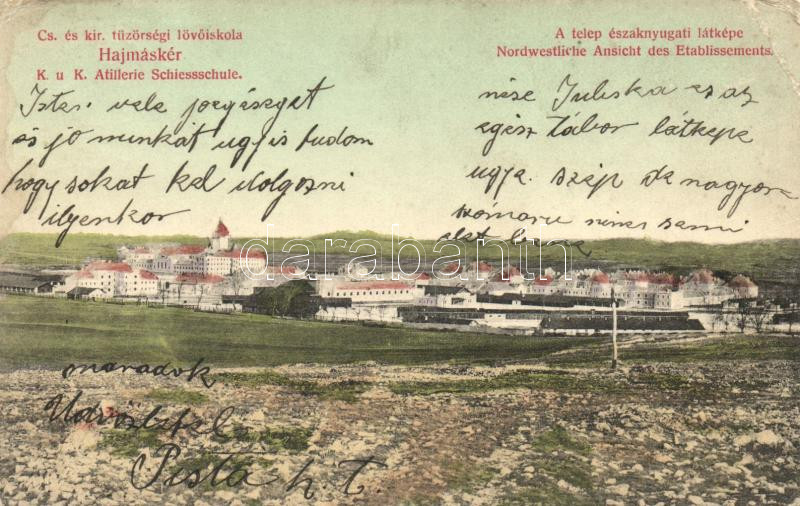 Cs. és kir. tüzörségi lövőiskola
Hajmáskér
K. u K. Atillerie Schiessschule.
A telep északnyugati látképe
Nordwestliche Ansicht des Etablissements.
Isten vele jóegéséget
és jó munkát ugyis tudom
hogy sokat kel dolgozni
ilyenkor
néze Juliska ez az
egész tábor látképe
ugye szép de nagyon
szómoru nincs semi
élet bene
maradok
Üdvözlettel
Pista h. t.
darabanth